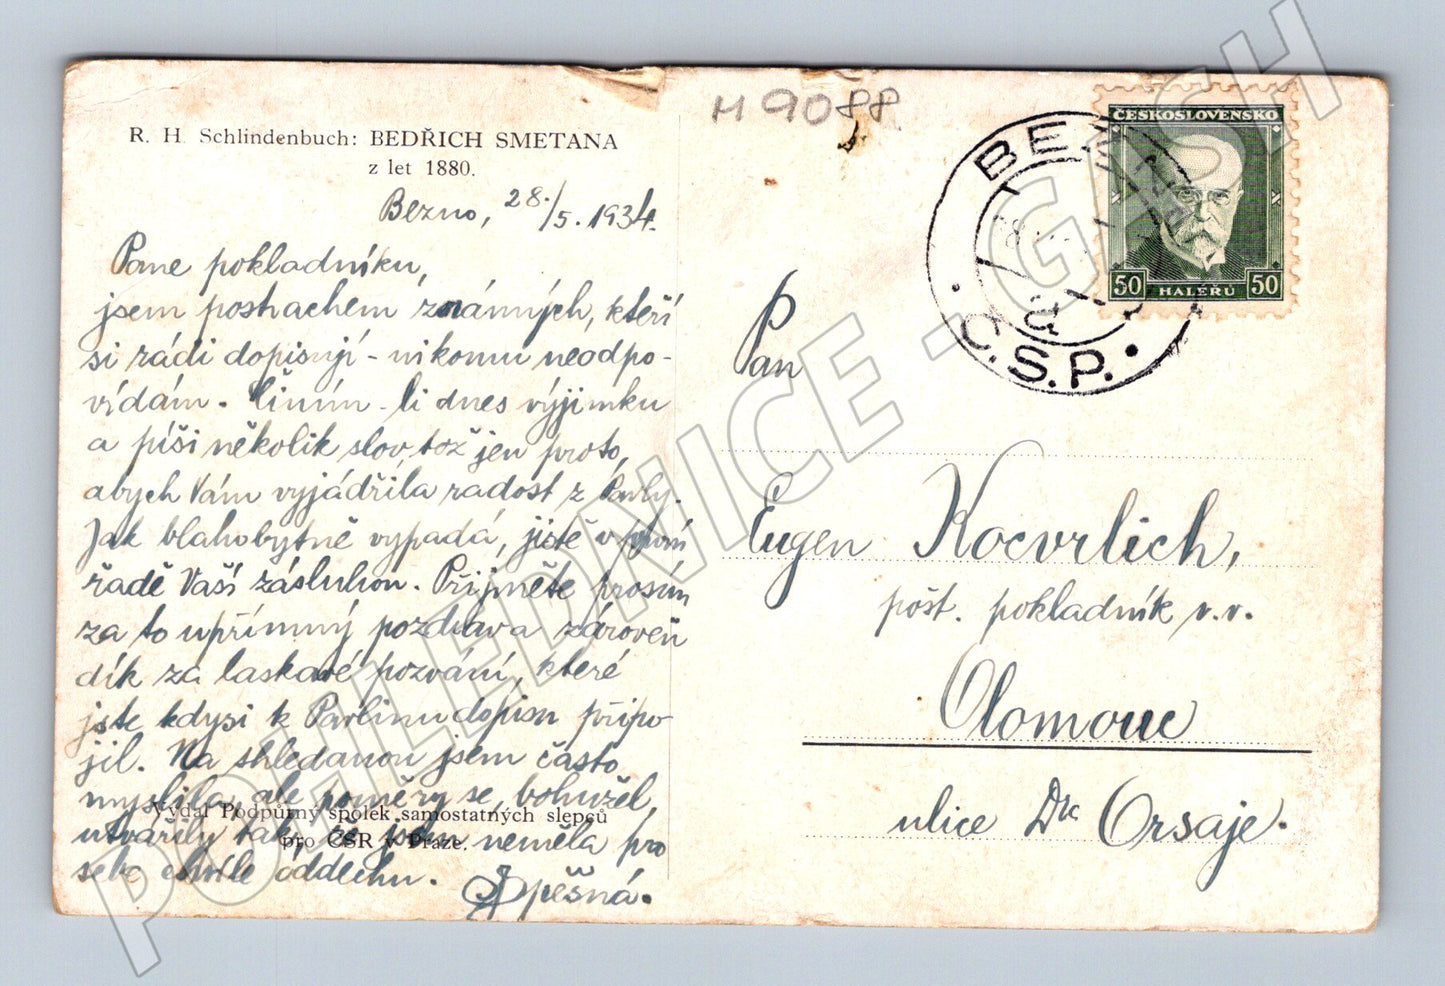 R. H. Schlindenbuch: BEDŘICH SMETANA
z let 1880.
Bezno, 28./5. 1934.
Pane pokladníku,
jsem postrachem známých, kteří
si rádi dopisují - nikomu neodpo-
vídám. Činím-li dnes výjimku
a píši několik slov, tož jen proto,
abych Vám vyjádřila radost z Pavly.
Jak blahobytně vypadá, jistě v první
řadě Vaší zásluhou. Přijměte prosím
za to upřímný pozdrav a zároveň
dík za laskavé pozvání, které
jste kdysi k Pavlinu dopisu připo-
jil. Na shledanou jsem často
myslila, ale poměry se, bohužel,
utvářily tak, že jsem neměla pro
sebe chvíle oddechu.
Spěšná.
Vydal Podpůrný spolek samostatných slepců
pro ČSR v Praze.
M 9088
BEZNO
Č.S.P.
ČESKOSLOVENSKO
50 HALÉŘŮ 50
Pan
Eugen Kocvrlich,
pošt. pokladník v. v.
Olomouc
ulice Dra Orsaje.
POHLEDNICE - GRESH